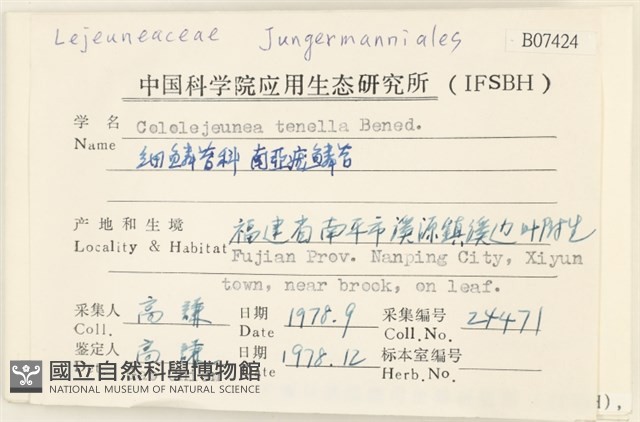 Lejeuneaceae Jungermanniales
B07424
中国科学院应用生态研究所 (IFSBH)
学名 Cololejeunea tenella Bened.
Name 细鳞苔科 南亚疣鳞苔
产地和生境 福建省南平市溪源鎮溪边叶附生
Locality & Habitat Fujian Prov. Nanping City, Xiyun
town, near brook, on leaf.
采集人 高謙 日期 1978.9 采集编号 24471
Coll. Date Coll.No.
鉴定人 高謙 日期 1978.12 标本室编号
Herb.No.
國立自然科學博物館
NATIONAL MUSEUM OF NATURAL SCIENCE